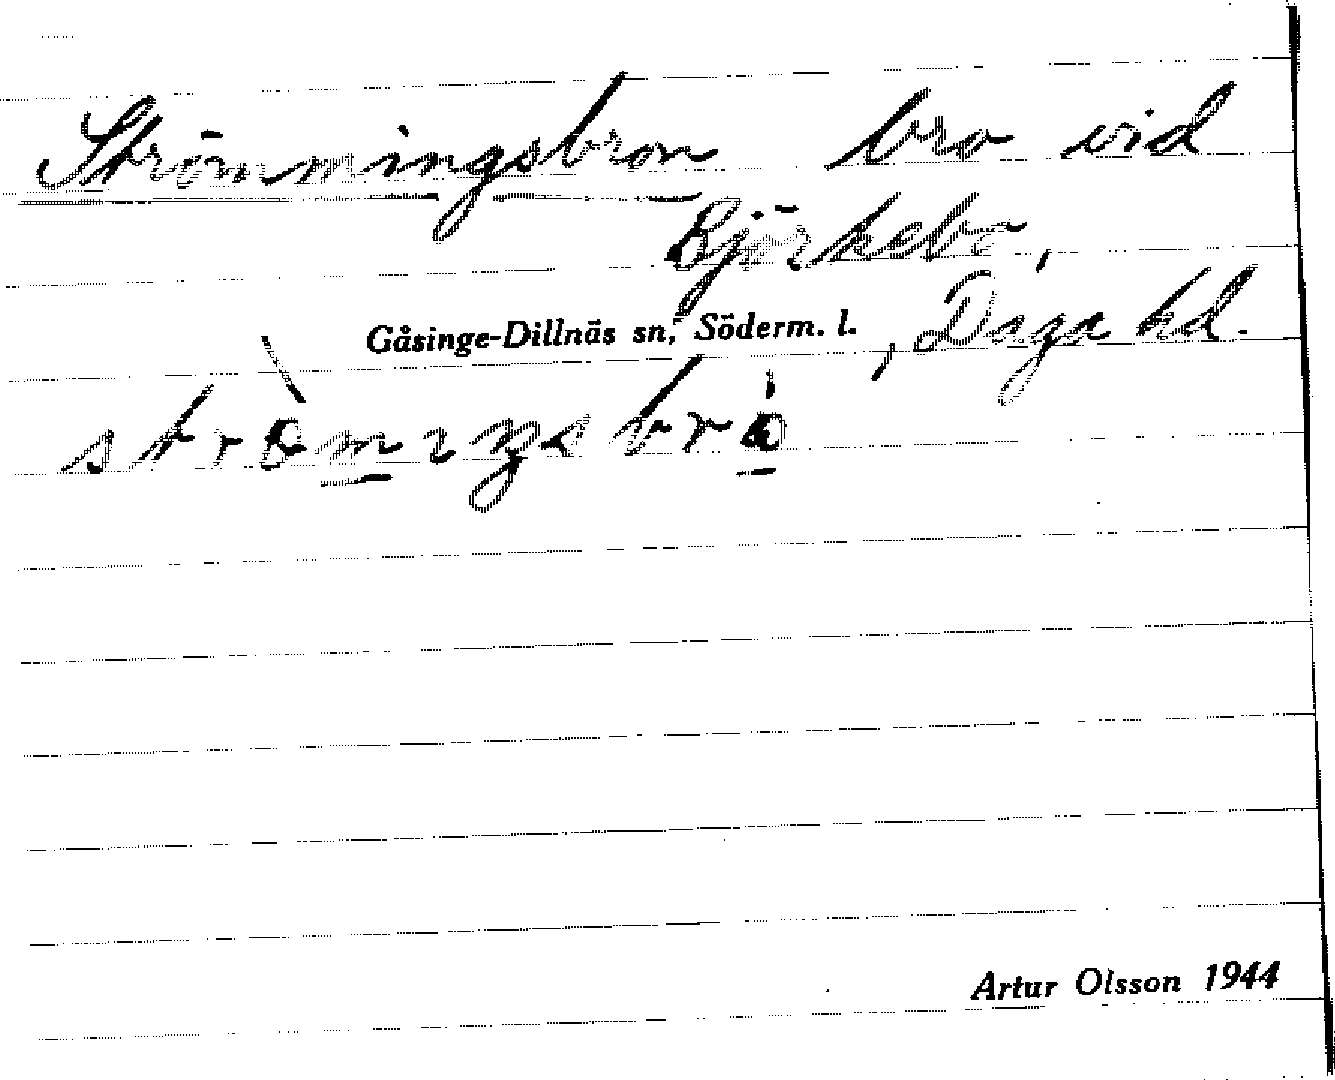 Strömmingsbron bro vid
Björkebo,
Gåsinge-Dillnäs sn, Söderm. l., Daga hd.
Artur Olsson 1944